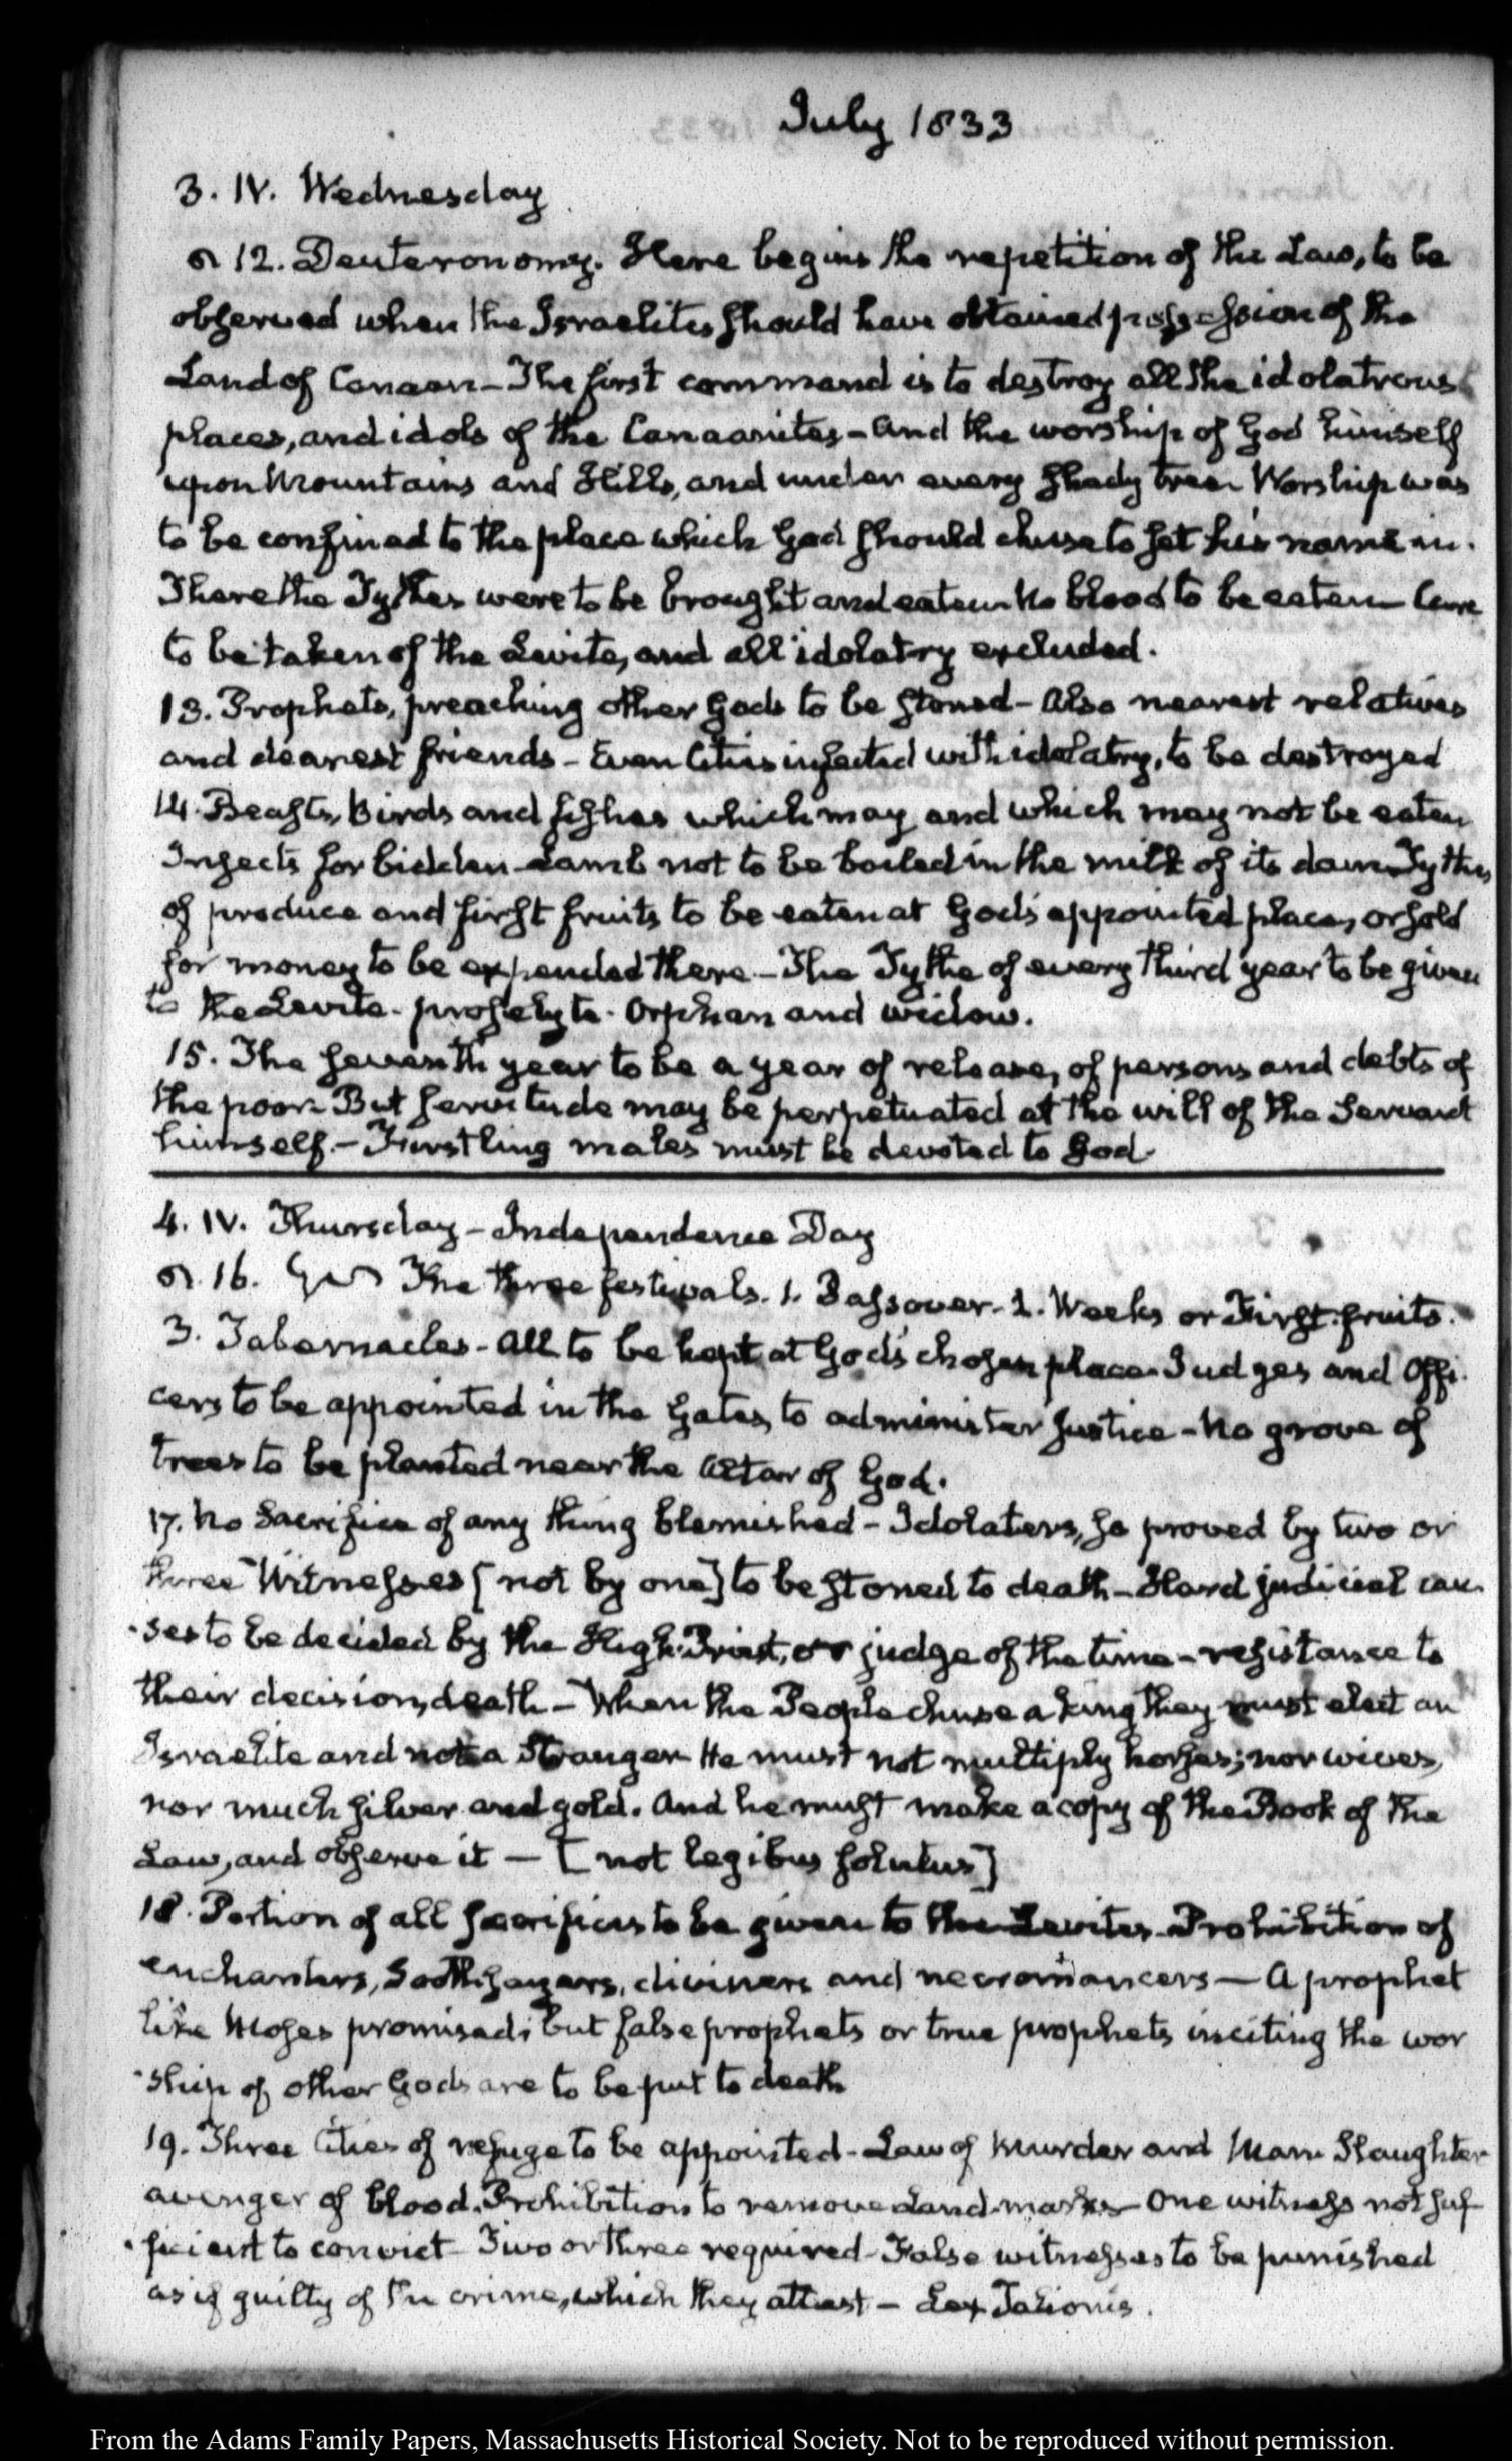 July 1833
3. IV. Wednesday
12. Deuteronomy. Here begins the repetition of the Law, to be
observed when the Israelites should have obtained possession of the
Land of Canaan - The first command is to destroy all the idolatrous
places, and idols of the Canaanites - And the worship of God himself
upon Mountains and Hills, and under every shady tree. Worship was
to be confined to the place which God should chuse to set his name in.
There the Tythes were to be brought and eaten. No blood to be eaten - Care
to be taken of the Levite, and all idolatry excluded.
13. Prophets, preaching other Gods to be stoned - Also nearest relatives
and dearest friends - Even Cities infected with idolatry, to be destroyed
14. Beasts, Birds and fishes which may and which may not be eaten
Insects forbidden - Lamb not to be boiled in the milk of its dam - Tythes
of produce and first fruits to be eaten at God's appointed place, or sold
for money to be expended there - The Tythe of every third year to be given
to the Levite - proselyte - Orphan and widow.
15. The seventh year to be a year of release, of persons and debts of
the poor - But servitude may be perpetuated at the will of the Servant
himself. - Firstling males must be devoted to God.
4. IV. Thursday - Independence Day
16. The three festivals. 1. Passover - 2. Weeks or First-fruits.
3. Tabernacles - All to be kept at God's chosen place - Judges and Offi-
cers to be appointed in the Gates, to administer Justice - No grove of
trees to be planted near the Altar of God.
17. No Sacrifice of any thing blemished - Idolaters, so proved by two or
three Witnesses [not by one] to be stoned to death - Hard judicial cau-
-ses to be decided by the High-Priest, or judge of the time - resistance to
their decision, death - When the People chuse a King they must elect an
Israelite and not a Stranger - He must not multiply horses; nor wives,
nor much silver and gold. And he must make a copy of the Book of the
Law, and observe it — [not legibus solutus]
18. Portion of all sacrifices to be given to the Levites - Prohibition of
enchanters, Soothsayers, diviners and necromancers — A prophet
like Moses promised; but false prophets or true prophets inciting the wor
-ship of other Gods are to be put to death
19. Three Cities of refuge to be appointed - Law of Murder and Man Slaughter
avenger of blood. Prohibition to remove Land-marks - One witness not suf
-ficient to convict - Two or three required - False witnesses to be punished
as if guilty of the crime, which they attest - Lex Talionis.
From the Adams Family Papers, Massachusetts Historical Society. Not to be reproduced without permission.